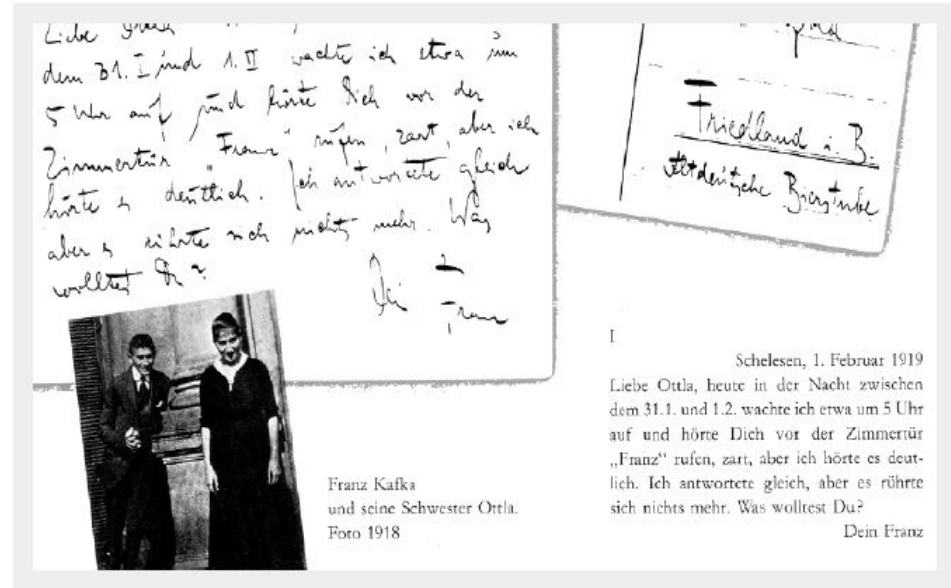 Liebe
dem 31. I und 1. II wachte ich etwa um
5 Uhr auf und hörte Dich vor der
Zimmertür „Franz" rufen, zart, aber ich
hörte es deutlich. Ich antwortete gleich
aber es rührte sich nichts mehr. Was
wolltest Du?
Dein
Franz
Friedland i. B.
Altdeutsche Bierstube
Franz Kafka
und seine Schwester Ottla.
Foto 1918
I
Schelesen, 1. Februar 1919
Liebe Ottla, heute in der Nacht zwischen
dem 31.1. und 1.2. wachte ich etwa um 5 Uhr
auf und hörte Dich vor der Zimmertür
„Franz“ rufen, zart, aber ich hörte es deut-
lich. Ich antwortete gleich, aber es rührte
sich nichts mehr. Was wolltest Du?
Dein Franz